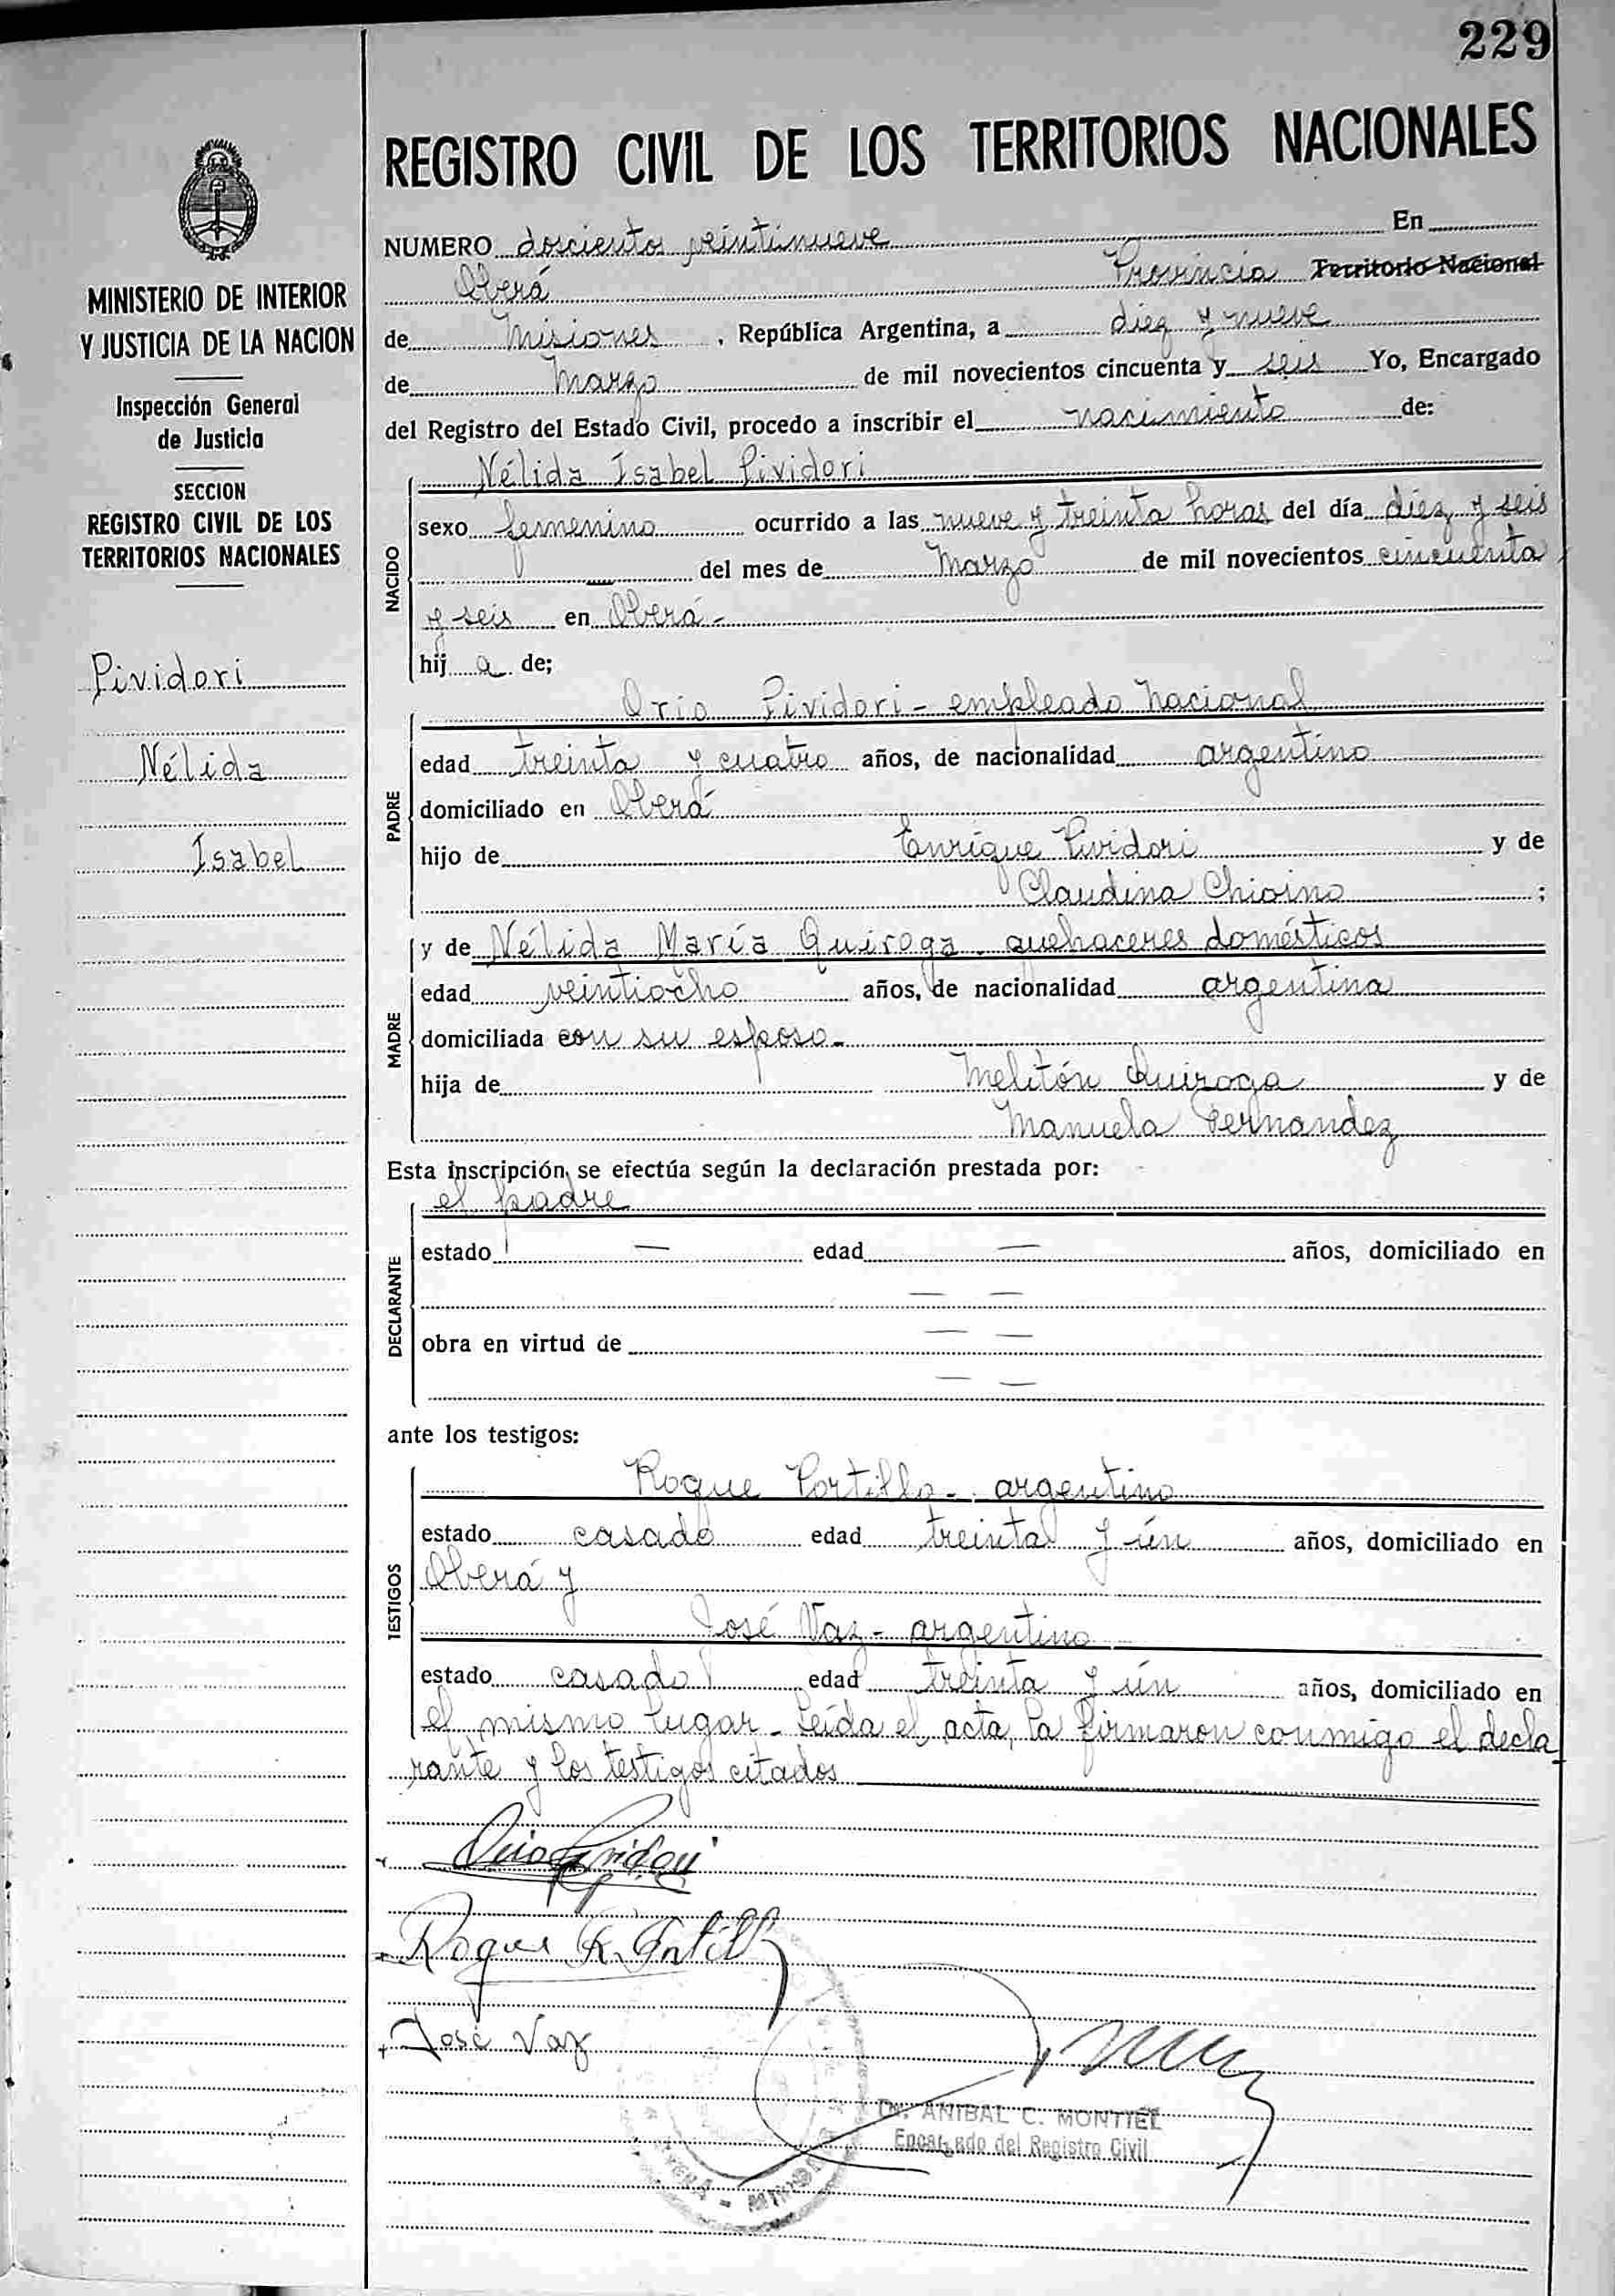 229
REGISTRO CIVIL DE LOS TERRITORIOS NACIONALES
MINISTERIO DE INTERIOR
Y JUSTICIA DE LA NACION
Inspección General
de Justicia
SECCION
REGISTRO CIVIL DE LOS
TERRITORIOS NACIONALES
Pividori
Nélida
Isabel
NUMERO doscientos veintinueve En
Oberá Provincia Territorio Nacional
de Misiones , República Argentina, a diez y nueve
de Marzo de mil novecientos cincuenta y seis Yo, Encargado
del Registro del Estado Civil, procedo a inscribir el nacimiento de:
NACIDO
Nélida Isabel Pividori
sexo femenino ocurrido a las nueve y treinta horas del día diez y seis
del mes de Marzo de mil novecientos cincuenta
y seis en Oberá -
hij a de;
PADRE
Orio Pividori - empleado nacional
edad treinta y cuatro años, de nacionalidad argentino
domiciliado en Oberá
hijo de Enrique Pividori y de
Claudina Chioino ;
MADRE
y de Nélida María Quiroga - quehaceres domésticos
edad veintiocho años, de nacionalidad argentina
domiciliada con su esposo -
hija de Melitón Quiroga y de
Manuela Fernandez
Esta inscripción se efectúa según la declaración prestada por:
DECLARANTE
el padre
estado — edad — años, domiciliado en
— —
obra en virtud de — —
— —
ante los testigos:
TESTIGOS
Roque Portillo - argentino
estado casado edad treinta y ún años, domiciliado en
Oberá y
José Vaz - argentino
estado casado edad treinta y ún años, domiciliado en
el mismo lugar - Leída el acta, la firmaron conmigo el decla
rante y los testigos citados
Orio Pividori
Roque R. Portillo
José Vaz
Dr. ANIBAL C. MONTIEL
Encargado del Registro Civil
OBERÁ - MISIONES